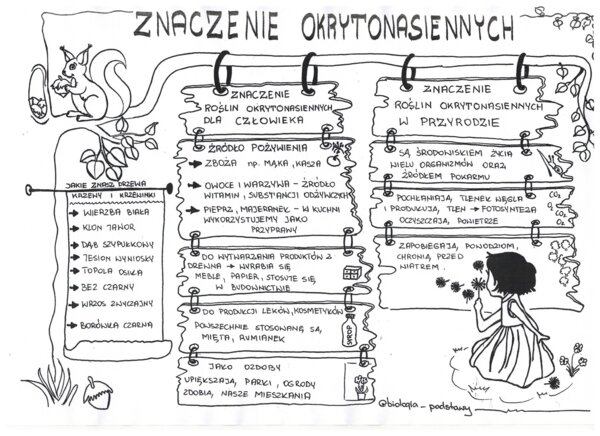 ZNACZENIE OKRYTONASIENNYCH
JAKIE ZNASZ DRZEWA
KRZEWY I KRZEWINKI
WIERZBA BIAŁA
KLON JAWOR
DĄB SZYPUŁKOWY
JESION WYNIOSŁY
TOPOLA OSIKA
BEZ CZARNY
WRZOS ZWYCZAJNY
BORÓWKA CZARNA
ZNACZENIE
ROŚLIN OKRYTONASIENNYCH
DLA CZŁOWIEKA
ŹRÓDŁO POŻYWIENIA
ZBOŻA np. MĄKA, KASZA
OWOCE I WARZYWA – ŹRÓDŁO
WITAMIN, SUBSTANCJI ODŻYWCZYCH
PIEPRZ, MAJERANEK – W KUCHNI
WYKORZYSTUJEMY JAKO
PRZYPRAWY
DO WYTWARZANIA PRODUKTÓW Z
DREWNA → WYRABIA SIĘ
MEBLE, PAPIER, STOSUJE SIĘ
W BUDOWNICTWIE
DO PRODUKCJI LEKÓW, KOSMETYKÓW
POWSZECHNIE STOSOWANE SĄ,
MIĘTA, RUMIANEK
SYROP
JAKO OZDOBY
UPIĘKSZAJĄ, PARKI, OGRODY
ZDOBIĄ, NASZE MIESZKANIA
ZNACZENIE
ROŚLIN OKRYTONASIENNYCH
W PRZYRODZIE
SĄ ŚRODOWISKIEM ŻYCIA
WIELU ORGANIZMÓW ORAZ
ŹRÓDŁEM POKARMU
POCHŁANIAJĄ, TLENEK WĘGLA
I PRODUKUJĄ, TLEN → FOTOSYNTEZA
OCZYSZCZAJĄ, POWIETRZE
CO₂
O₂
CO₂
O₂
ZAPOBIEGAJĄ, POWODZIOM,
CHRONIĄ PRZED
WIATREM.
@biologia_podstawy